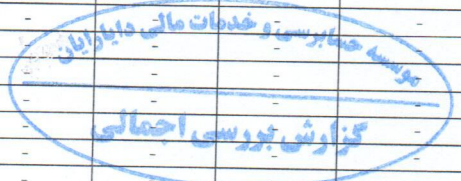 موسسه حسابرسی و خدمات مالی دایارایان
گزارش بررسی اجمالی